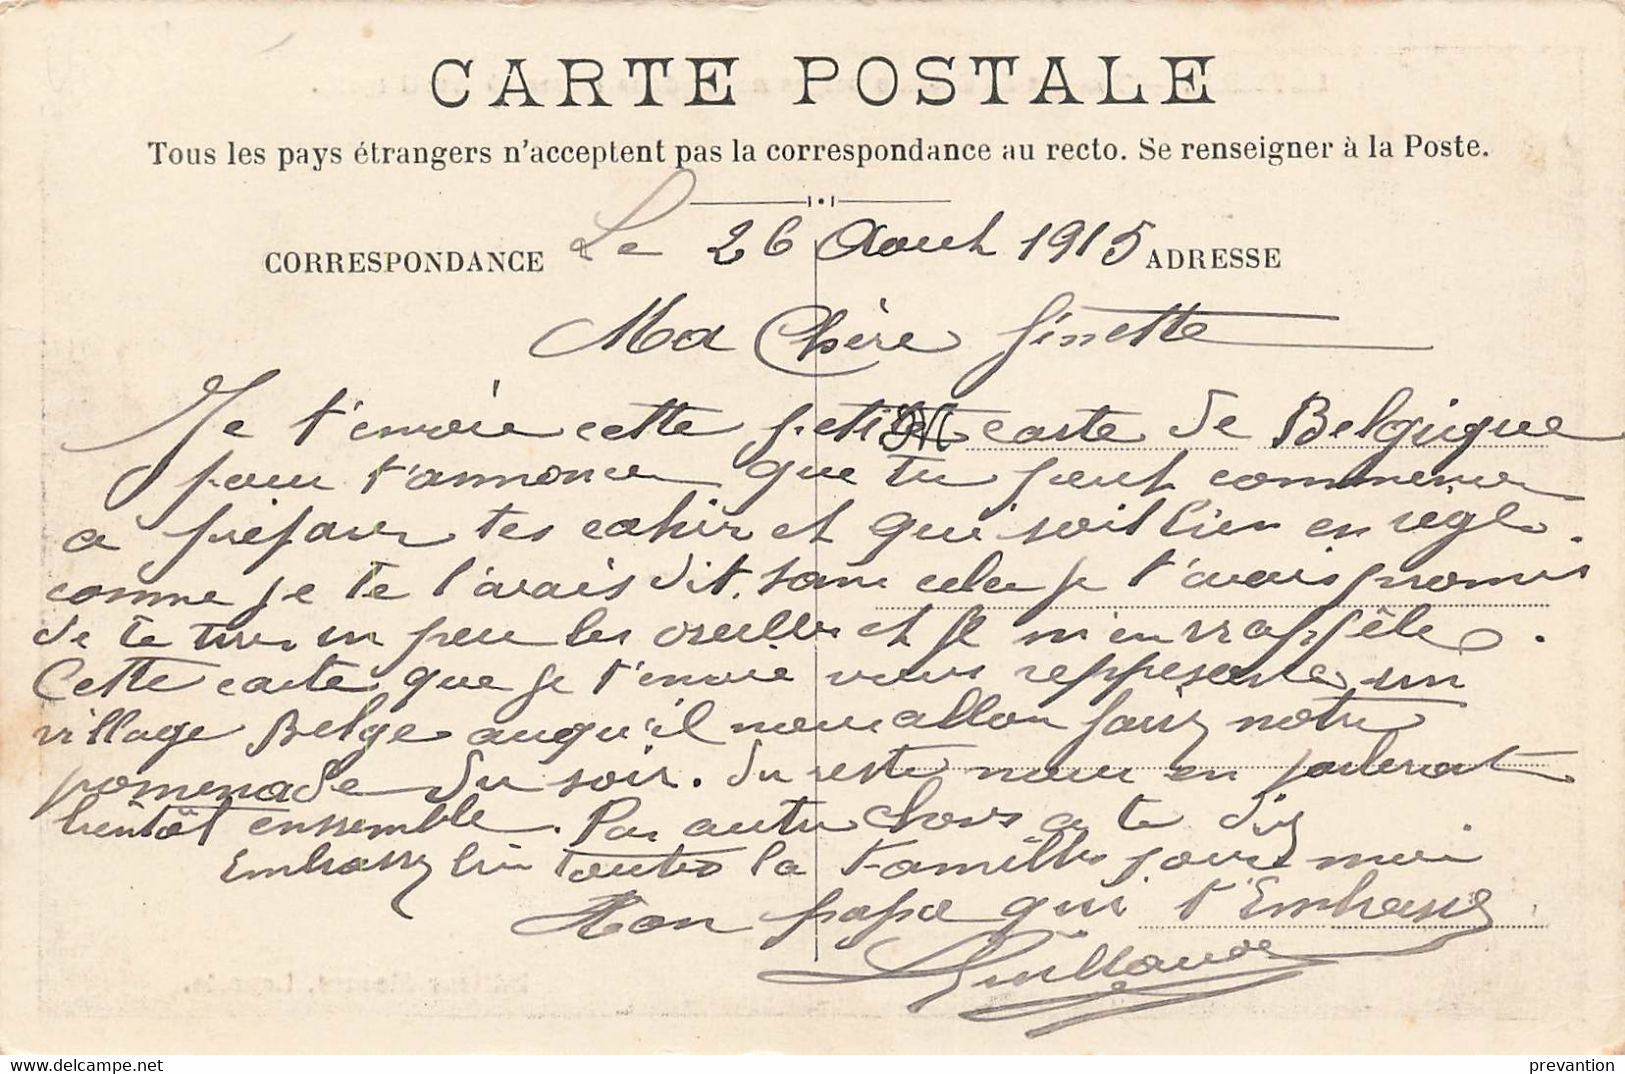 CARTE POSTALE
Tous les pays étrangers n'acceptent pas la correspondance au recto. Se renseigner à la Poste.
CORRESPONDANCE Le 26 Aout 1915 ADRESSE
Ma Chère Ginette
Je t'envoie cette petite carte de Belgique
pour t'annoncer que tu peut commencer
a préparer tes cahier et qui soit bien en règle.
comme je te l'avais dit, sans cela je t'avais promis
de te tirer un peu les oreilles et je m'en rappêle.
Cette carte que je t'envoie vous reppesente un
village Belge auqu'il nous allon faire notre
pomenade du soir. du reste nous en parleront
bientôt ensemble. Pas autre chose a te dire
Embrasse bien toutes la Famille pour moi
Ton papa qui t'Embrasse
Guillaume
www.delcampe.net
prevantion